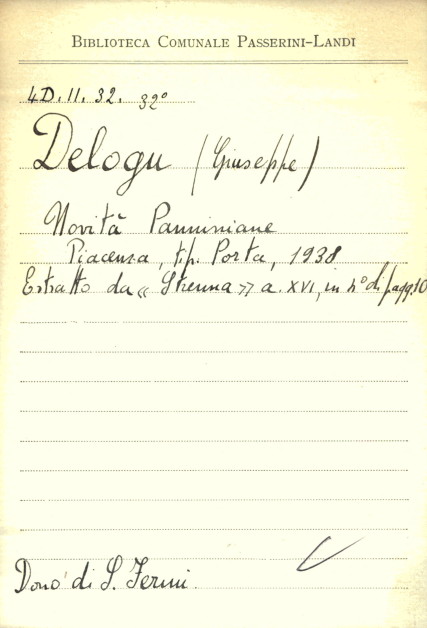 BIBLIOTECA COMUNALE PASSERINI-LANDI
4D. II. 32. 32º
Delogu (Giuseppe)
Novità Panniniane
Piacenza, tip. Porta, 1938
Estratto da « Strenna » a. XVI, in 4º di pagg. 10
Dono di S. Fermi.